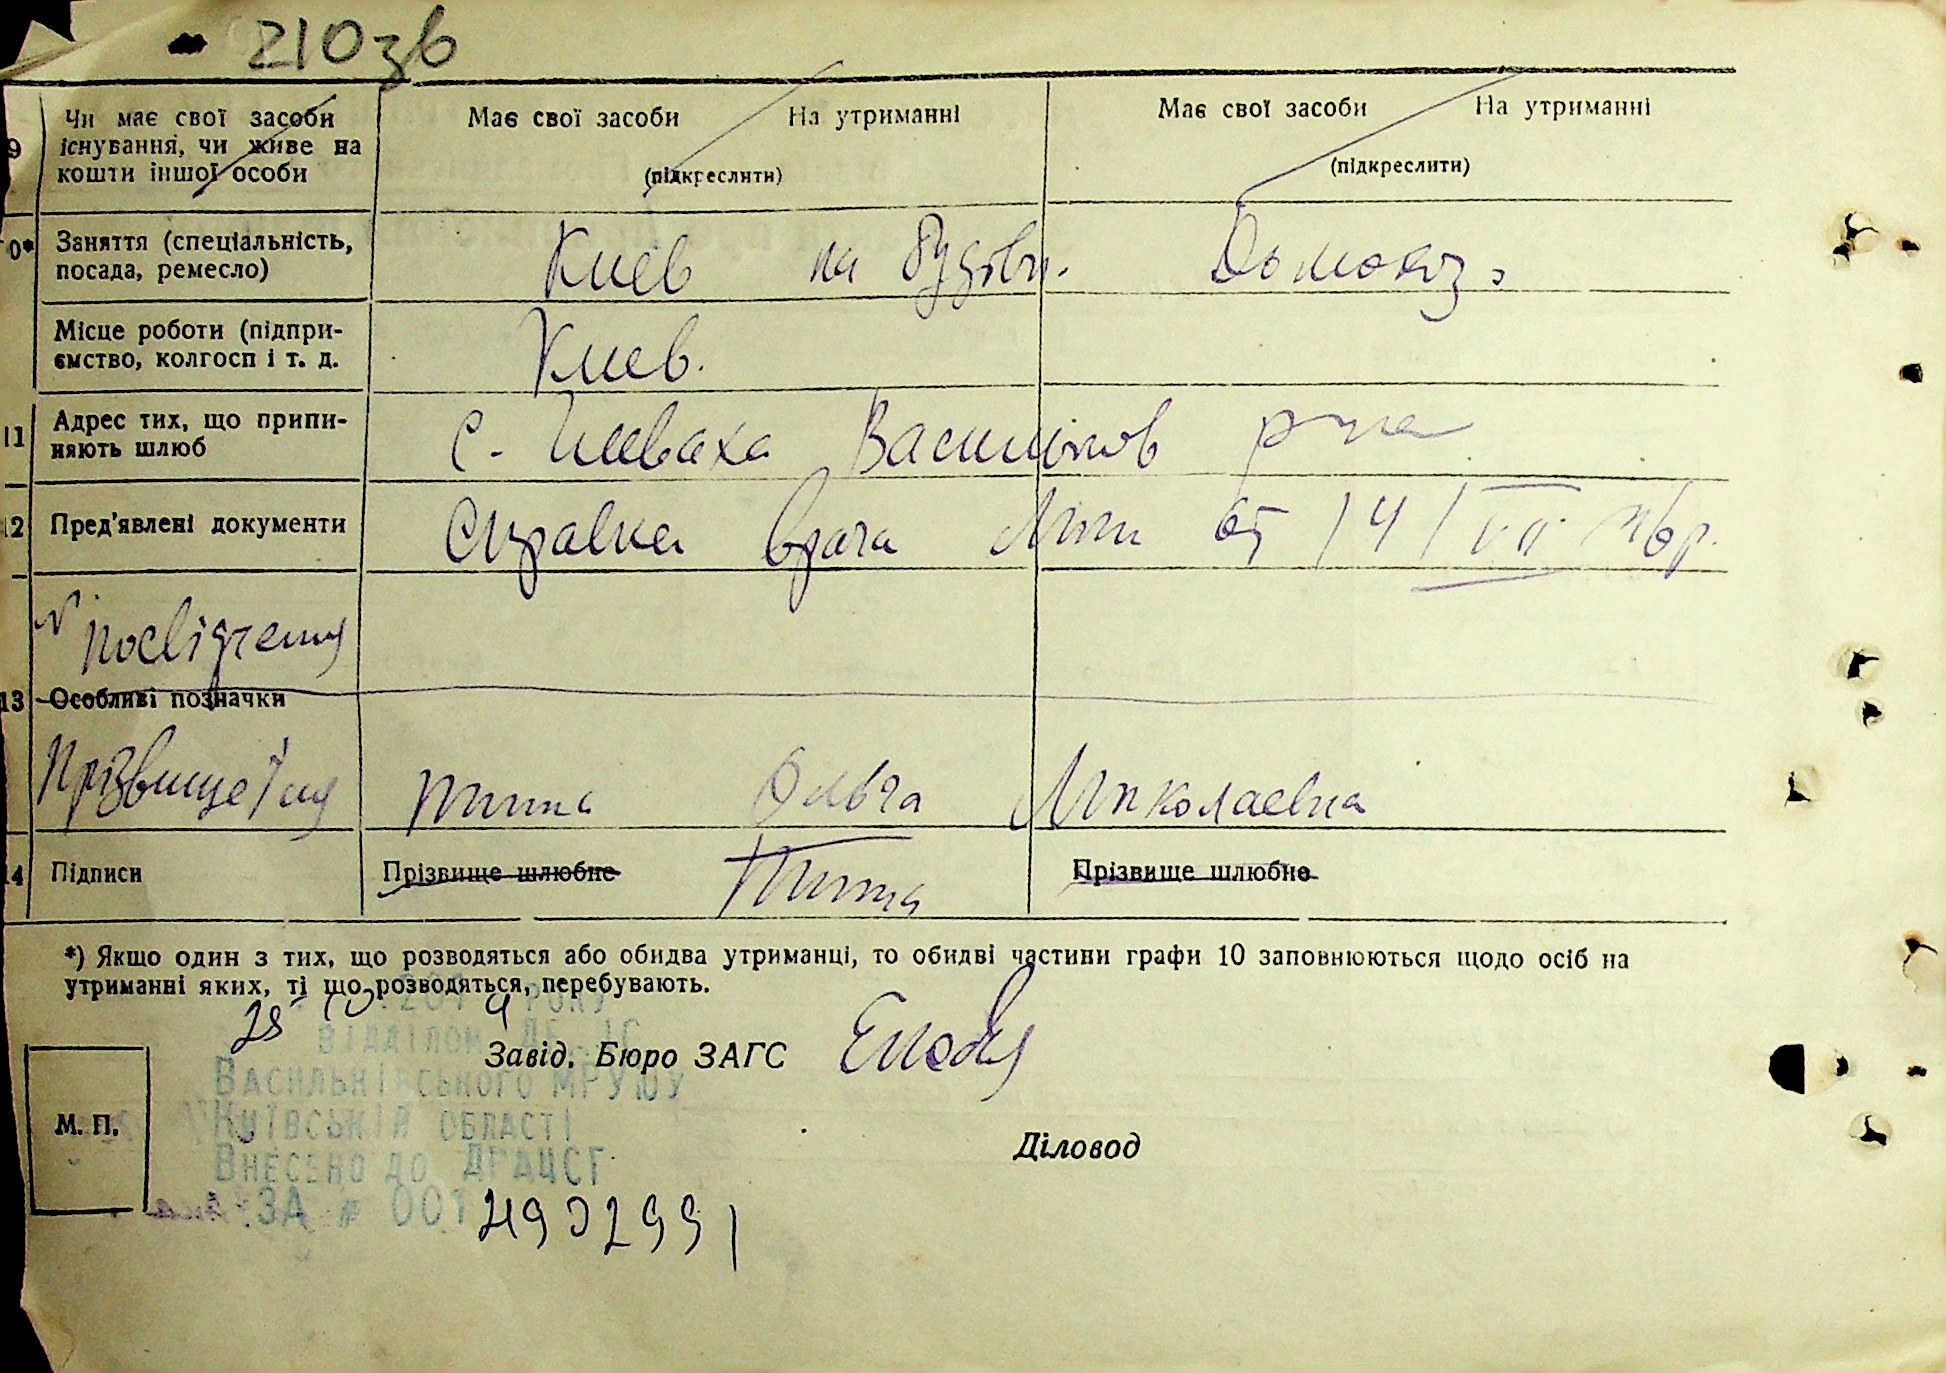 210зв
9 Чи має свої засоби існування, чи живе на кошти іншої особи
Має свої засоби На утриманні
(підкреслити)
Має свої засоби На утриманні
(підкреслити)
10* Заняття (спеціальність, посада, ремесло)
Киев на будівн. Домогоз.
Місце роботи (підприємство, колгосп і т. д.
Киев.
11 Адрес тих, що припиняють шлюб
с. Глеваха Васильков р-на
12 Пред'явлені документи
Справка врача от 14/VII 46р.
посвідчення
13 Особливі позначки
Прізвище Імя
Ольга Миколаевна
14 Підписи
Прізвище шлюбне
Прізвище шлюбне
*) Якщо один з тих, що розводяться або обидва утриманці, то обидві частини графи 10 заповнюються щодо осіб на
утриманні яких, ті що розводяться, перебувають.
28 10 2014 РОКУ
ВІДДІЛОМ ДРАЦС
Завід. Бюро ЗАГС
ВАСИЛЬКІВСЬКОГО МРУЮУ
КИЇВСЬКІЙ ОБЛАСТІ
М. П.
Діловод
ВНЕСЕНО ДО ДРАЦСГ
ЗА № 001